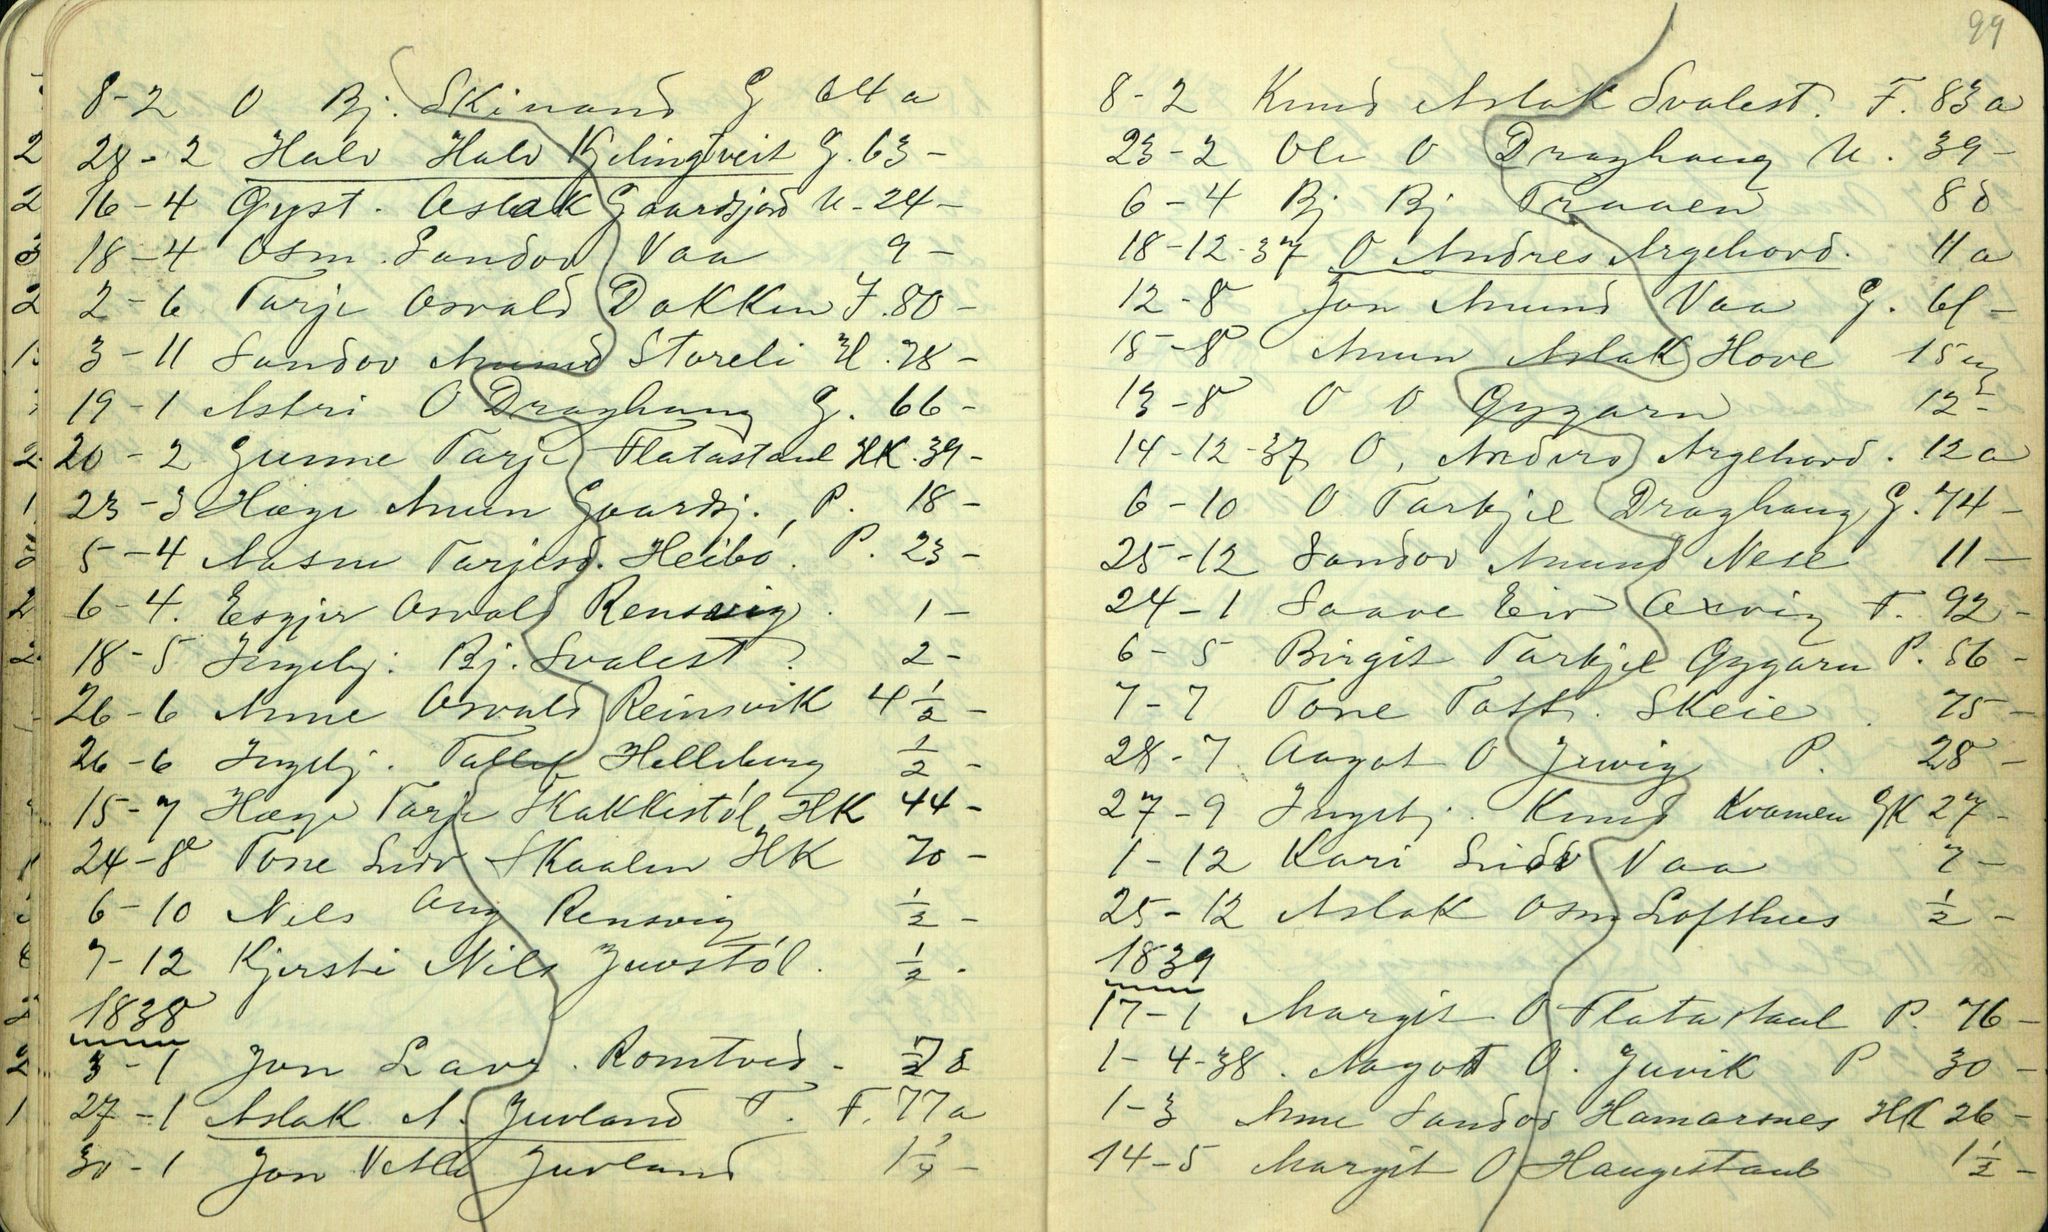 8-2 O Bj. Skinand G 64 a
28-2 Halv Halv Kjelingtveit G. 63 -
16-4 Gyst. Aslak Gaardsjord U - 24 -
18-4 Osm. Sandov Vaa 9 -
2-6 Tarje Osvald Dakken F. 80 -
3-11 Sandov Amund Storeli U. 78 -
19-1 Astri O Draghaug G. 66 -
20-2 Gunne Tarje Flatastaul HK. 39 -
23-3 Hæge Amun Gaardsj. P. 18 -
5-4 Aasne Tarjesd. Heibö. P. 23 -
6-4. Osvald Rensvig. 1 -
18-5 Ingebj. Bj. Svalest. 2 -
26-6 Anne Osvald Reinsvik 4 1/2 -
26-6 Ingebj. Tallef Helleberg 1/2 -
15-7 Hæge Tarje HK 44 -
24-8 Tone Skaalen HK 70 -
6-10 Nils Aug Rensvig 1/2 -
7-12 Kjersti Nils Juvstöl. 1/2 -
1838
3-1 Jon Lavr. Romtveid -
27-1 Aslak A. Juvland T. F. 77 a
30-1 Jon Vetle Juvland
99
8-2 Knud Aslak Svalest. F. 83 a
23-2 Ole O Draghaug U. 39 -
6-4 Bj Bj Traaen 8 d
18-12-37 O Andres Argehovd. 11 a
12-8 Jon Amund Vaa G. 61 -
15-8 Amun Aslak Hove 15
13-8 O O Gygarn 12
14-12-37 O, Anders Argehovd. 12 a
6-10 O Tarkjel Draghaug G. 74 -
25-12 Sandov Amund Nese 11 -
24-1 Saave Eiv Axvig F. 92 -
6-5 Birgit Tarkjel Gygarn P. 56 -
7-7 Tone Skeie. 75 -
28-7 Aagot O Juvig P. 28 -
27-9 Ingebj. Knud Kvamen GK 27 -
1-12 Kari Vaa 7 -
25-12 Aslak Osm Lofthus 1/2 -
1839
17-1 Margit O Flatastaul P. 76 -
1-4-38. Aagot O. Juvik P 30 -
1-3 Anne Sandov Hamarsnes HK 26 -
14-5 Margit O Haugestaul 1 1/2 -